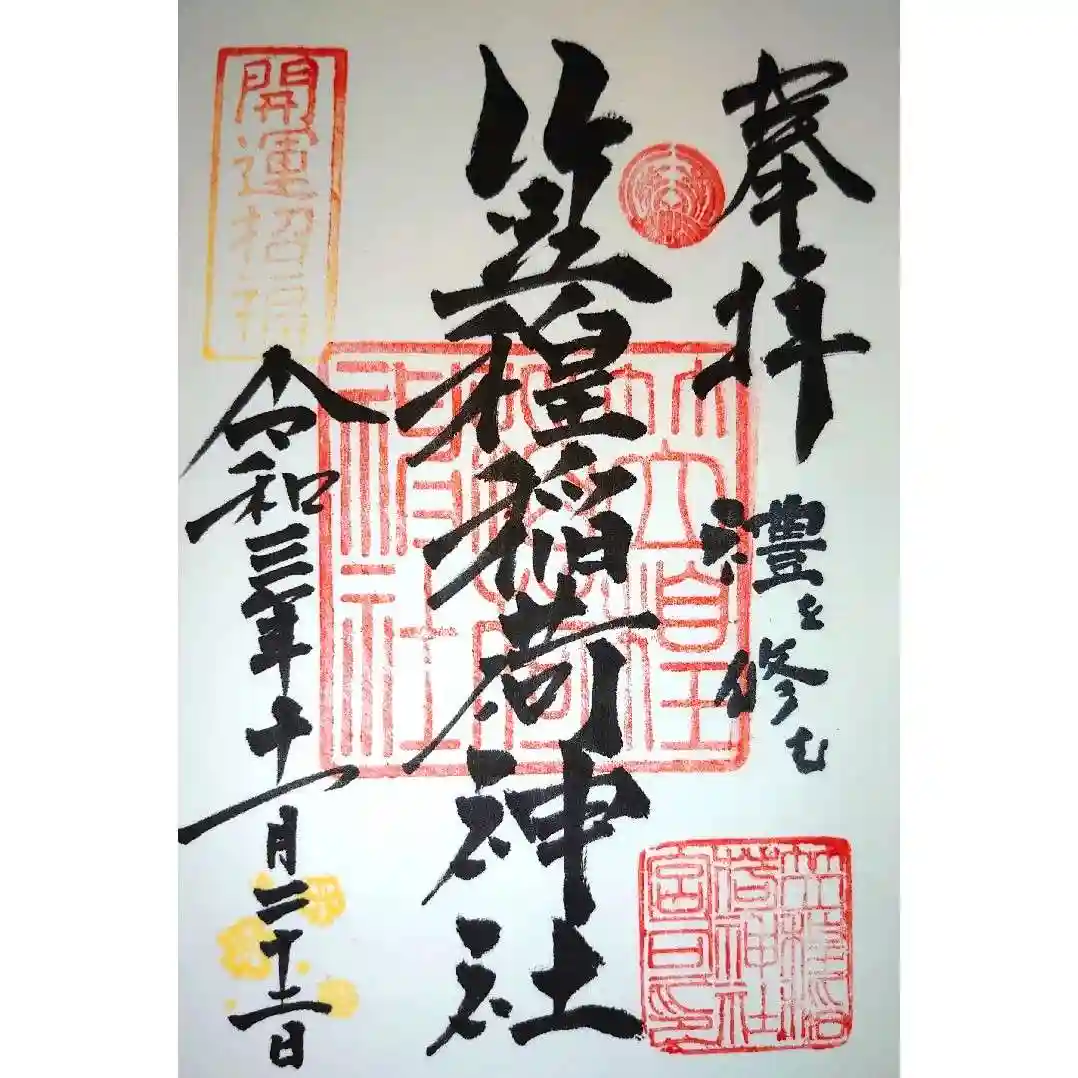 奉拝
禮を修む
笠䅣稲荷神社
令和三年十一月二十三日
開運招福
笠䅣稲荷神社
笠䅣稲
荷神社
宮司印